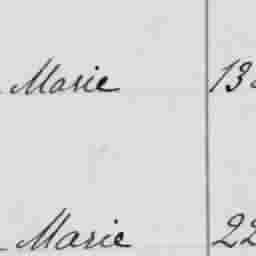 Marie 13
Marie 22